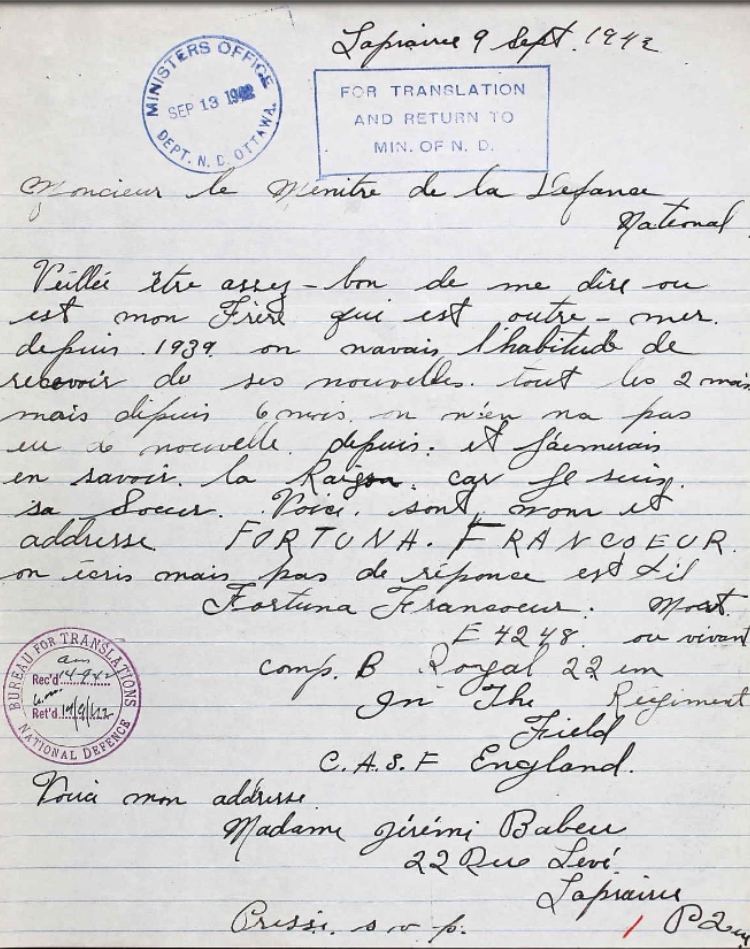 Laprairie 9 Sept. 1942
MINISTERS OFFICE
SEP 13 1942
DEPT. N. D. OTTAWA.
FOR TRANSLATION
AND RETURN TO
MIN. OF N. D.
Moncieur le Menitre de la Defance
National
Veillée être assez-bon de me dire ou
est mon Frère qui est outre-mer.
depuis 1939 on navais l'habitude de
recevoir de ses nouvelles. tout les 2 mois
mais depuis 6 mois on n'en na pas
eu de nouvelle. depuis. et j'aémerais
en savoir. la Raison. car je suis.
sa Soeur. Voici. sont nom et
addresse FORTUNA. FRANCOEUR.
on écris mais pas de réponce est til
Fortuna Francoeur. Mort.
E 4248. ou vivant
comp. B Royal 22 em
In The Regiment
Field
C.A.S.F England.
BUREAU FOR TRANSLATIONS
Rec'd 14-9-42
Ret'd
NATIONAL DEFENCE
Voici mon addresse
Madame Jérémi Babeu
22 Rue Levé
Laprairie
Pressé. s v p. P2